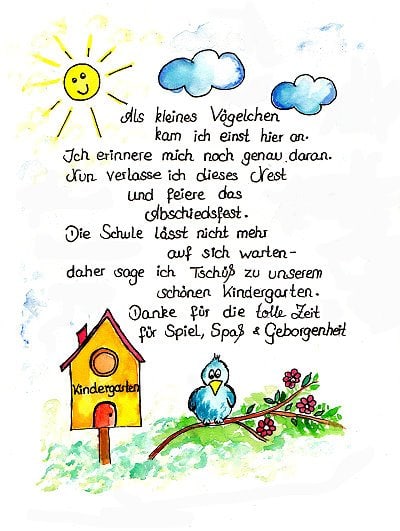 Als kleines Vögelchen
kam ich einst hier an.
Ich erinnere mich noch genau daran.
Nun verlasse ich dieses Nest
und feiere das
Abschiedsfest.
Die Schule lässt nicht mehr
auf sich warten-
daher sage ich Tschüß zu unserem
schönen Kindergarten.
Danke für die tolle Zeit
für Spiel, Spaß & Geborgenheit
Kindergarten